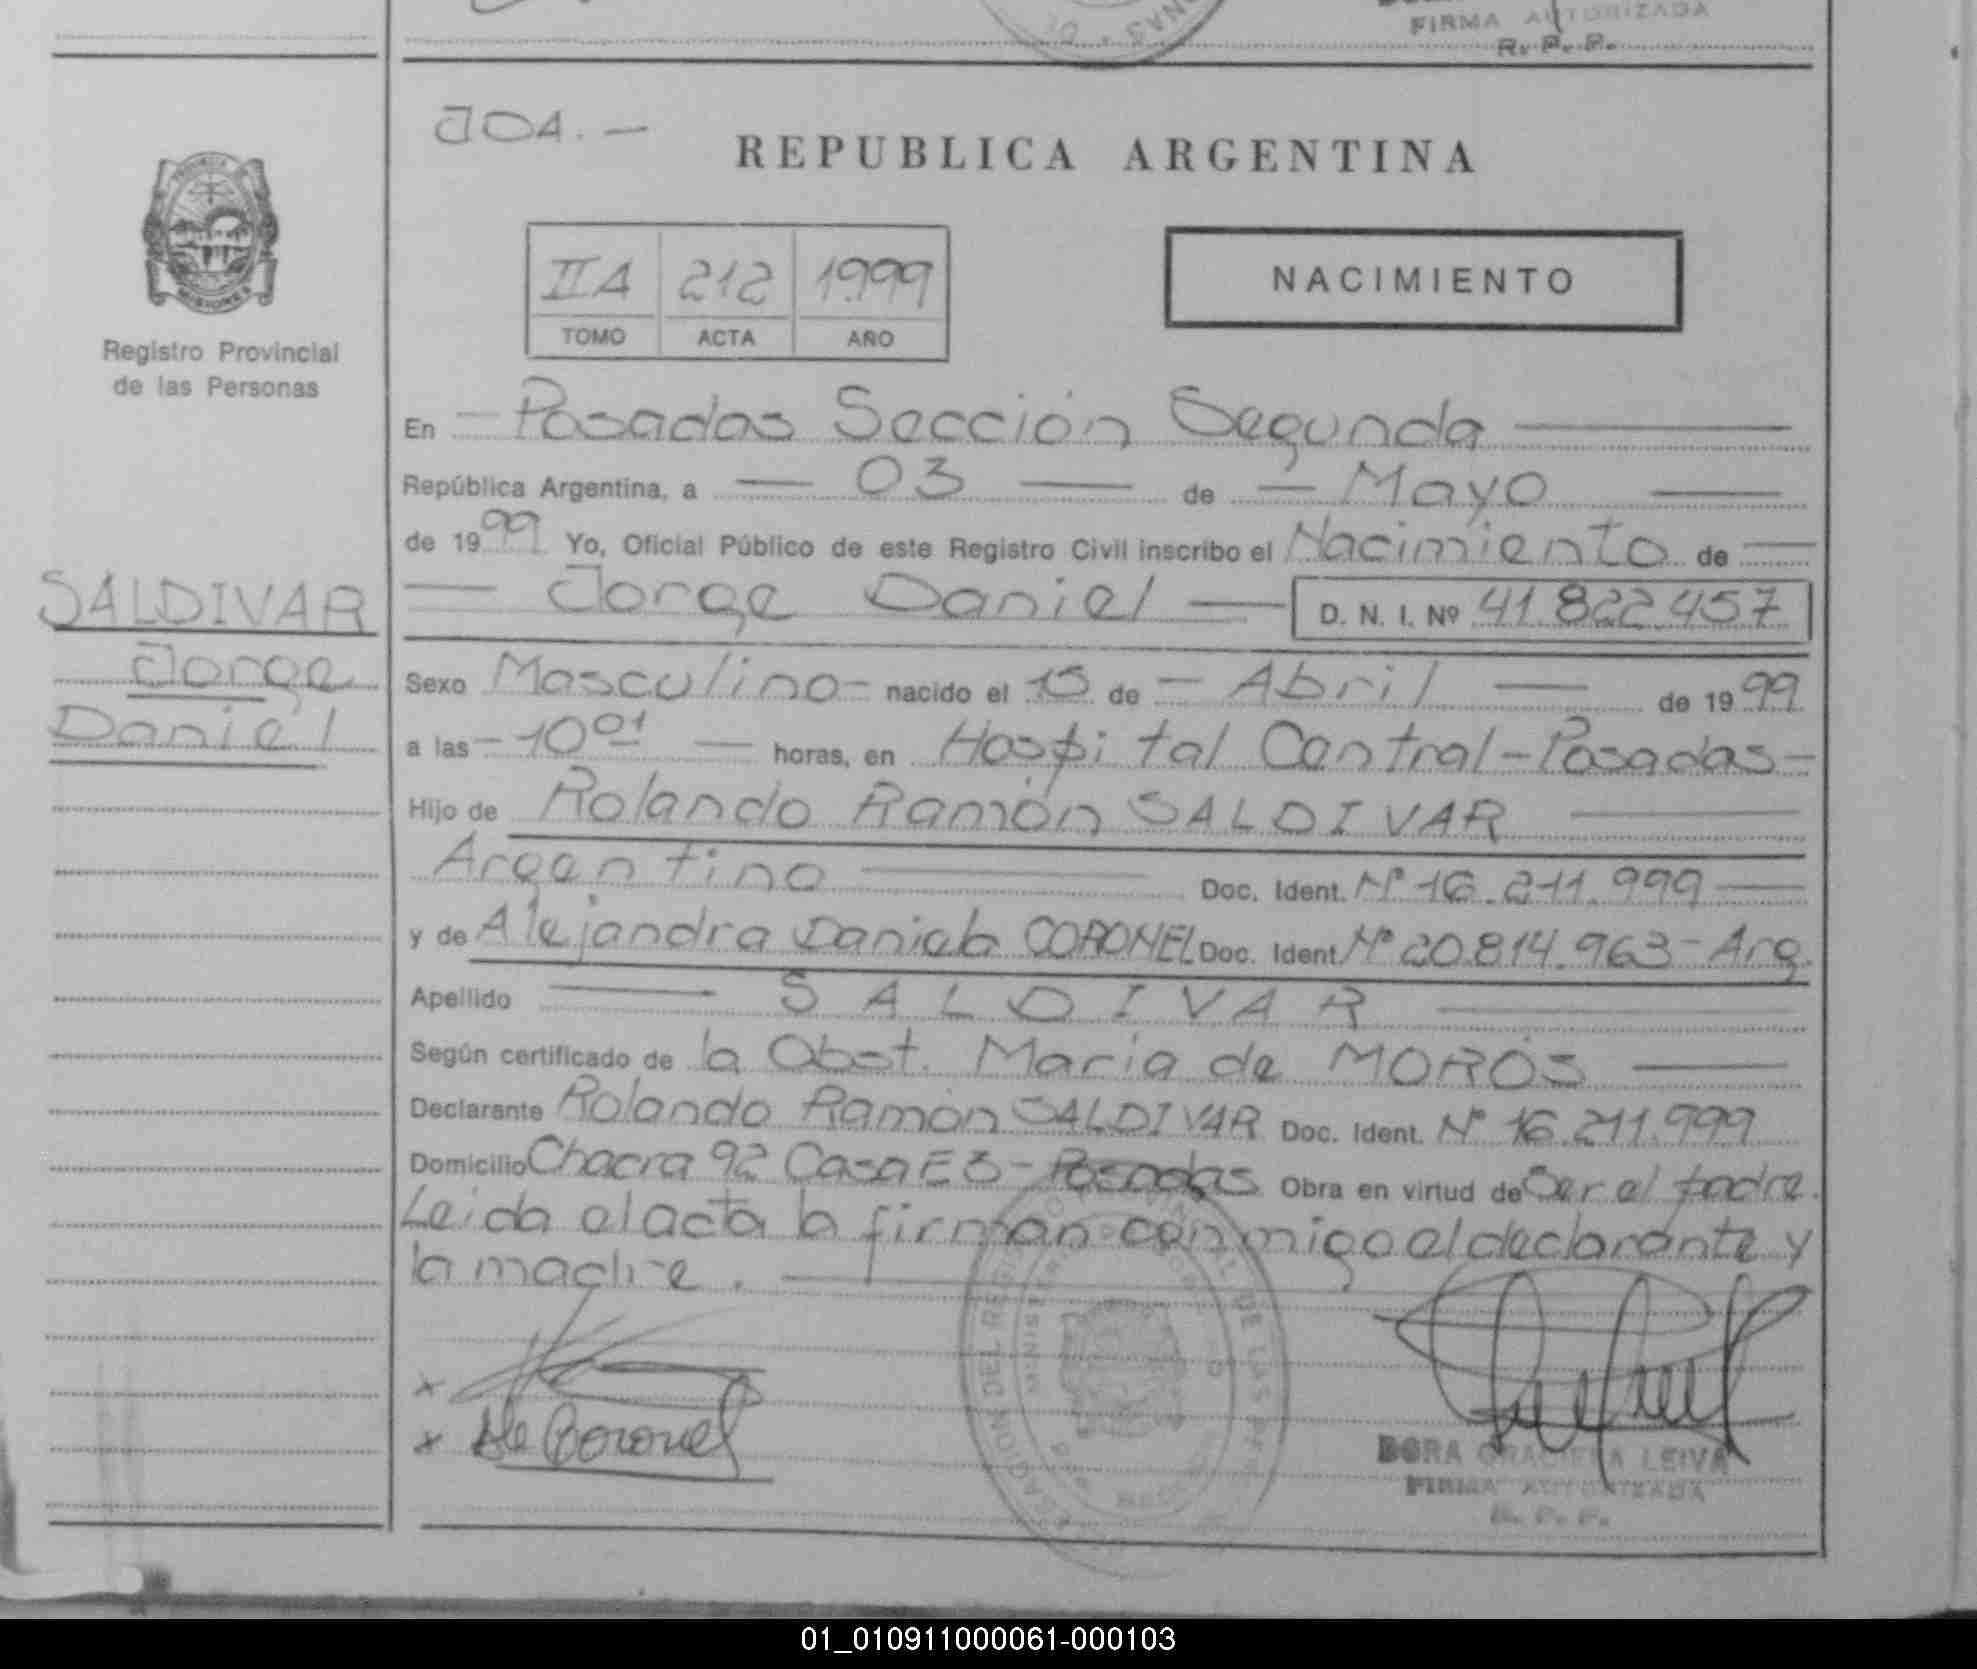 FIRMA AUTORIZADA
R. P. P.
JOA.-
REPUBLICA ARGENTINA
II A 212 1999
TOMO ACTA AÑO
NACIMIENTO
MISIONES
Registro Provincial
de las Personas
SALDIVAR
Jorge
Daniel
En - Posadas Sección Segunda —
República Argentina, a — 03 — de — Mayo —
de 1999 Yo, Oficial Público de este Registro Civil inscribo el Nacimiento de —
— Jorge Daniel — D. N. I. Nº 41.822.457
Sexo Masculino - nacido el 15 de — Abril — de 1999
a las - 10 01 — horas, en Hospital Central - Posadas -
Hijo de Rolando Ramón SALDIVAR —
Argentino — Doc. Ident. Nº 16.211.999 —
y de Alejandra Daniela CORONEL Doc. Ident. Nº 20.814.963 - Arg.
Apellido — SALDIVAR —
Según certificado de la Obst. María de MOROS —
Declarante Rolando Ramón SALDIVAR Doc. Ident. Nº 16.211.999
Domicilio Chacra 92 Casa E3 - Posadas Obra en virtud de Ser el padre.
Leida el acta la firman conmigo el declarante y
la madre. —
x
x Ale Coronel
DORA GRACIELA LEIVA
FIRMA AUTORIZADA
R. P. P.
01_010911000061-000103